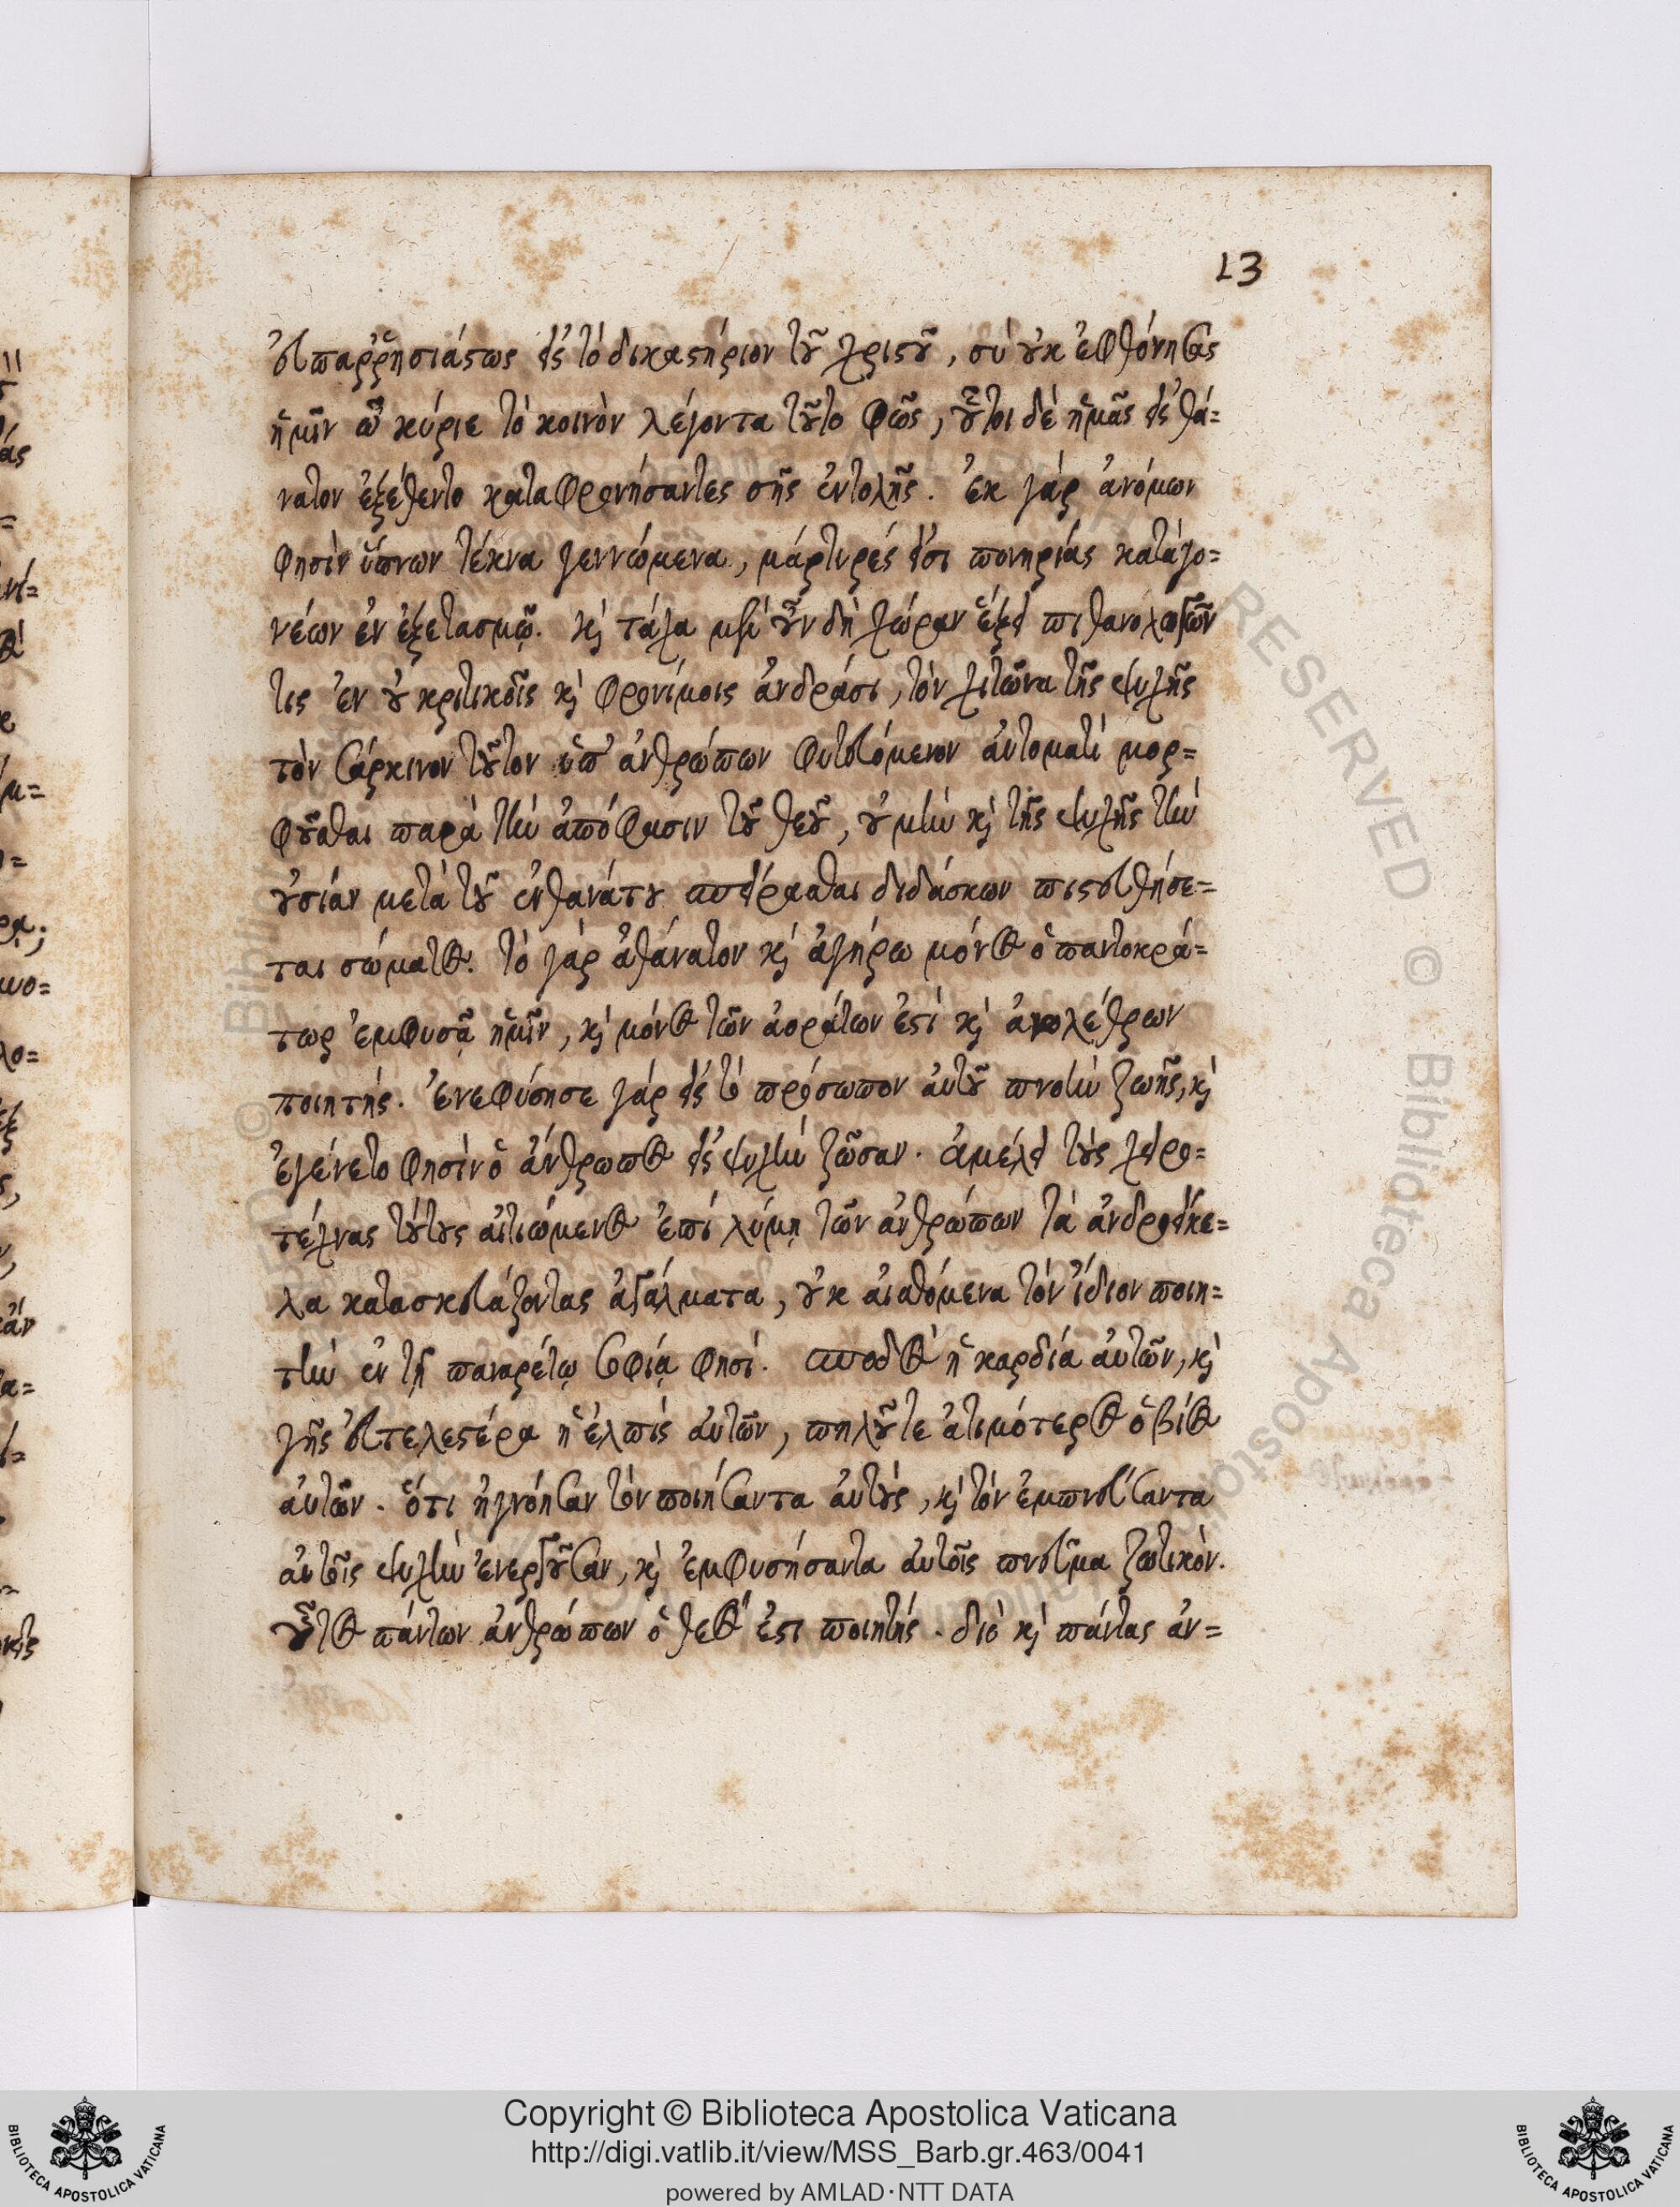 13
εὐπαῤῥησιάστως εἰς τὸ δικαστήριον τοῦ χριστοῦ, σὺ οὐκ ἐφθόνησας
ἡμῖν ὦ κύριε τὸ κοινὸν λέγοντα τοῦτο φῶς, οὗτοι δὲ ἡμᾶς εἰς θά=
νατον ἐξέθεντο καταφρονήσαντες σῆς ἐντολῆς. ἐκ γὰρ ἀνόμων
φησὶν ὕπνων τέκνα γεννώμενα, μάρτυρές εἰσι πονηρίας κατὰ γο=
νέων ἐν ἐξετασμῷ. καὶ τάχα μὲν οὖν δὴ χώραν ἕξει πιθανολογῶν
τις ἐν οὐ κριτικοῖς καὶ φρονίμοις ἀνδράσι, τὸν χιτῶνα τῆς ψυχῆς
τὸν σάρκινον τοῦτον ὑπ' ἀνθρώπων φυτευόμενον αὐτοματὶ μορ=
φοῦσθαι παρὰ τὴν ἀπόφασιν τοῦ θεοῦ, οὐ μὴν καὶ τῆς ψυχῆς τὴν
οὐσίαν μετὰ τοῦ ἐνθανάτου σπείρασθαι διδάσκων πιστευθήσε=
ται σώματος. τὸ γὰρ ἀθάνατον καὶ ἀγήρω μόνος ὁ παντοκρά=
τωρ ἐμφυσᾷ ἡμῖν, καὶ μόνος τῶν ἀοράτων ἐστὶ καὶ ἀνολέθρων
ποιητής. ἐνεφύσησε γὰρ εἰς τὸ πρόσωπον αὐτοῦ πνοὴν ζωῆς, καὶ
ἐγένετο φησὶν ὁ ἄνθρωπος εἰς ψυχὴν ζῶσαν. ἀμέλει τοὺς χειρο=
τέχνας τούτους αἰτιώμενος ἐπὶ λύμῃ τῶν ἀνθρώπων τὰ ἀνδροείκε=
λα κατασκευάζοντας ἀγάλματα, οὐκ αἰσθόμενα τὸν ἴδιον ποιη=
τὴν ἐν τῇ παναρέτῳ σοφίᾳ φησί. σποδὸς ἡ καρδία αὐτῶν, καὶ
γῆς εὐτελεστέρα ἡ ἐλπὶς αὐτῶν, πηλοῦ τε ἀτιμότερος ὁ βίος
αὐτῶν. ὅτι ἠγνόησαν τὸν ποιήσαντα αὐτοὺς, καὶ τὸν ἐμπνεύσαντα
αὐτοῖς ψυχὴν ἐνεργοῦσαν, καὶ ἐμφυσήσαντα αὐτοῖς πνεῦμα ζωτικόν.
οὗτος πάντων ἀνθρώπων ὁ θεὸς ἐστι ποιητής. διὸ καὶ πάντας ἀν=
Copyright © Biblioteca Apostolica Vaticana
http://digi.vatlib.it/view/MSS_Barb.gr.463/0041
powered by AMLAD·NTT DATA